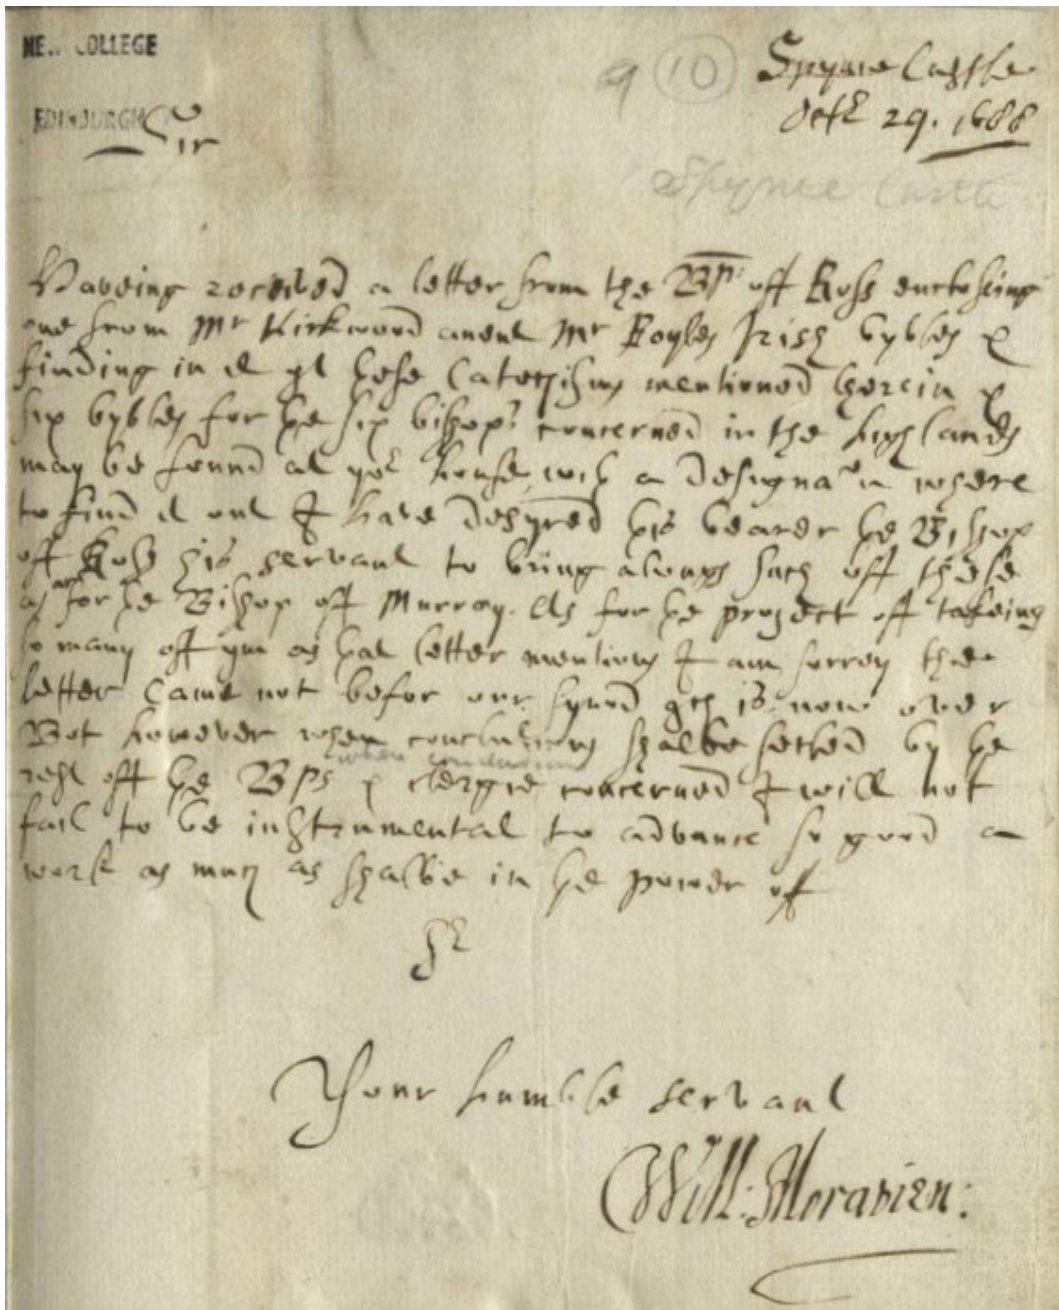 NEW COLLEGE
EDINBURGH
9 10
Spynie Castle
Octr 29. 1688
Sir
Spynie Castle
Haveing receeved a letter from the Bp: off Ross enclosing
one from Mr Kirkwood anent Mr Boyles Irish bybles &
finding in it yt yese Catechisms mentioned therein &
six bybles for ye six bishops concerned in the highlands
may be found at yor house, with a designatn where
to find it out I have desyred yis bearer ye Bishop
off Ross his servant to bring alongs such off these
as are for ye Bishop off Murray. As for ye project off takeing
so many off ym as yat letter mentions I am sorrey the
letter came not befor our synod qch is now over
Bot however when conclusions shalbe setled by ye
when conclusions
rest off ye Bps & clergie concerned I will not
fail to be instrumental to advance so good a
work as much as shalbe in ye power off
Sr
Your humble servant
Will: Moravien: